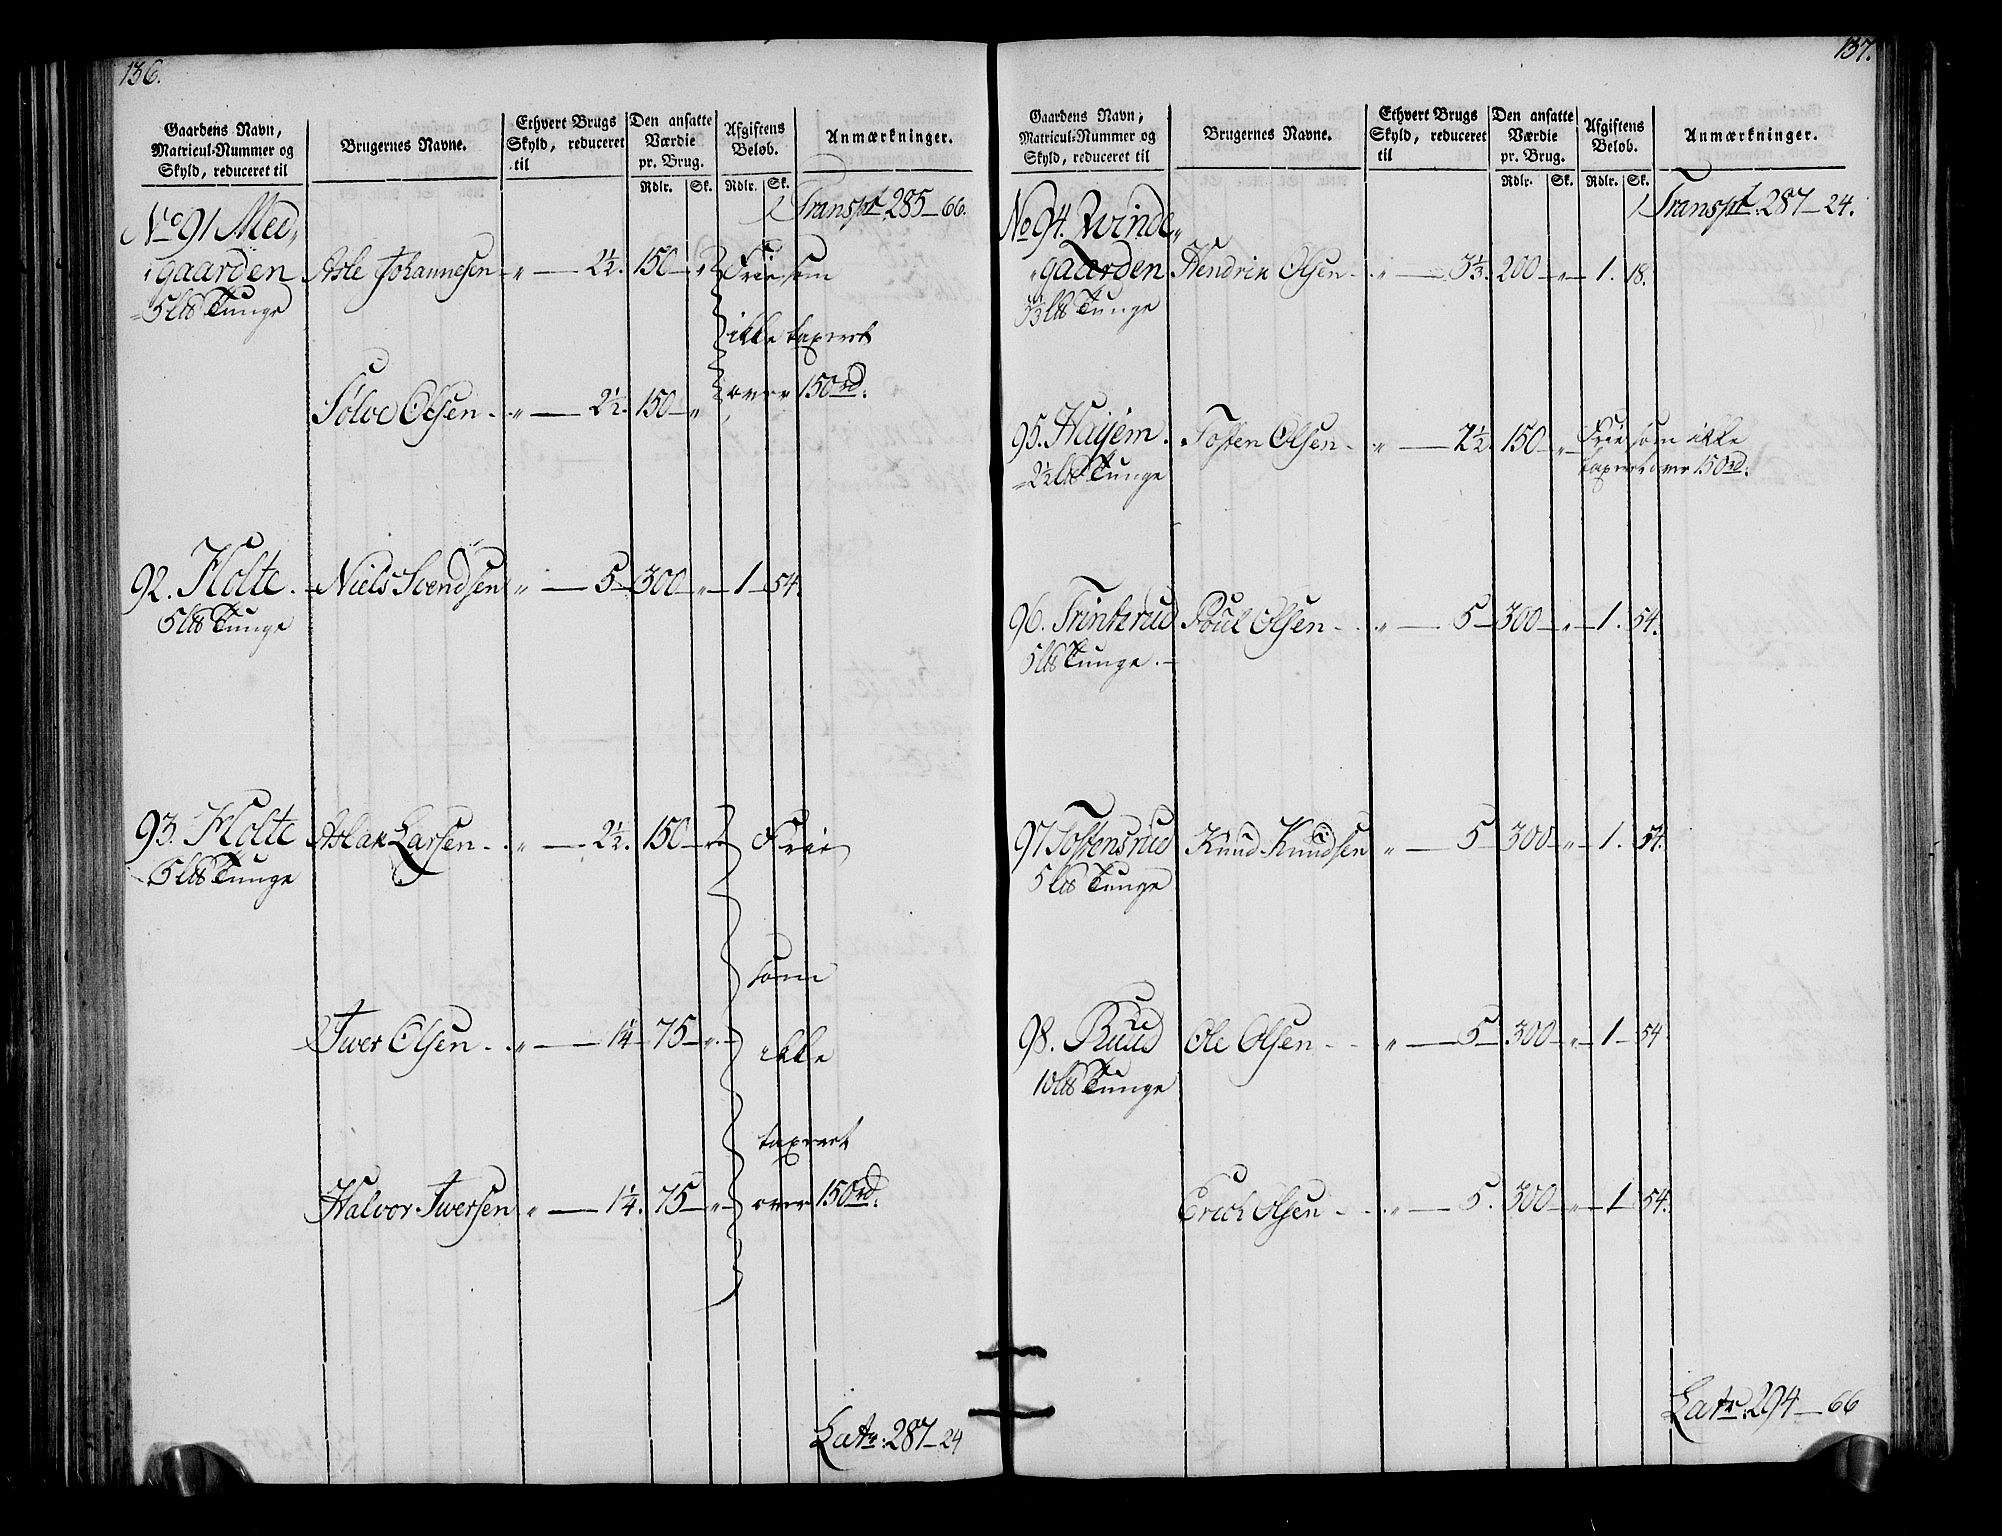 136.
Gaardens Navn, Matricul-Nummer og Skyld, reduceret til
Brugernes Navne.
Ethvert Brugs Skyld, reduceret til
Den ansatte Værdie pr. Brug.
Afgiftens Beløb.
Anmærkninger.
Rdlr. Sk. Rdlr. Sk.
Transpt 285 - 66.
No 91 Mel„
„gaarden Asle Johannesen „ — 2½. 150 - „ Frie som
5 lb Tunge
ikke taxeret
over 150 rd.
Sølve Olsen - „ — 2½. 150 - „
92. Holte. Niels Svendsen „ — 5 - 300 - „ - 1 - 54.
5 lb Tunge
93. Holte Aslak Larsen - „ — 2½. 150 - „ Frie
5 lb Tunge
som
Iver Olsen - „ — 1¼ - 75 - „ - ikke
taxeret
Halvor Iversen „ — 1¼. 75 - „ - over 150 rd.
Latr: 287 - 24
137.
Gaardens Navn, Matricul-Nummer og Skyld, reduceret til
Brugernes Navne.
Ethvert Brugs Skyld, reduceret til
Den ansatte Værdie pr. Brug.
Afgiftens Beløb.
Anmærkninger.
Rdlr. Sk. Rdlr. Sk.
Transpt 287 - 24.
No 94. Winde„
„gaarden Hendrik Olsen - „ — 3⅓. 200 - „ - 1. 18.
3⅓ lb Tunge
95. Haijem. Tosten Olsen - „ — 2½. 150 - „ Frie som ikke
2½ lb Tunge taxeret over 150 rd.
96. Trinterud Poul Olsen - „ — 5 - 300 - „ - 1. 54.
5 lb Tunge. -
97 Tostensrud Knud Knudsen „ — 5 - 300 - „ - 1. 54.
5 lb Tunge
98. Ruud Ole Olsen - „ — 5 - 300 - „ - 1 - 54
10 lb Tunge
Erich Olsen - „ — 5. 300 - „ - 1 - 54.
Latr: 294 - 66